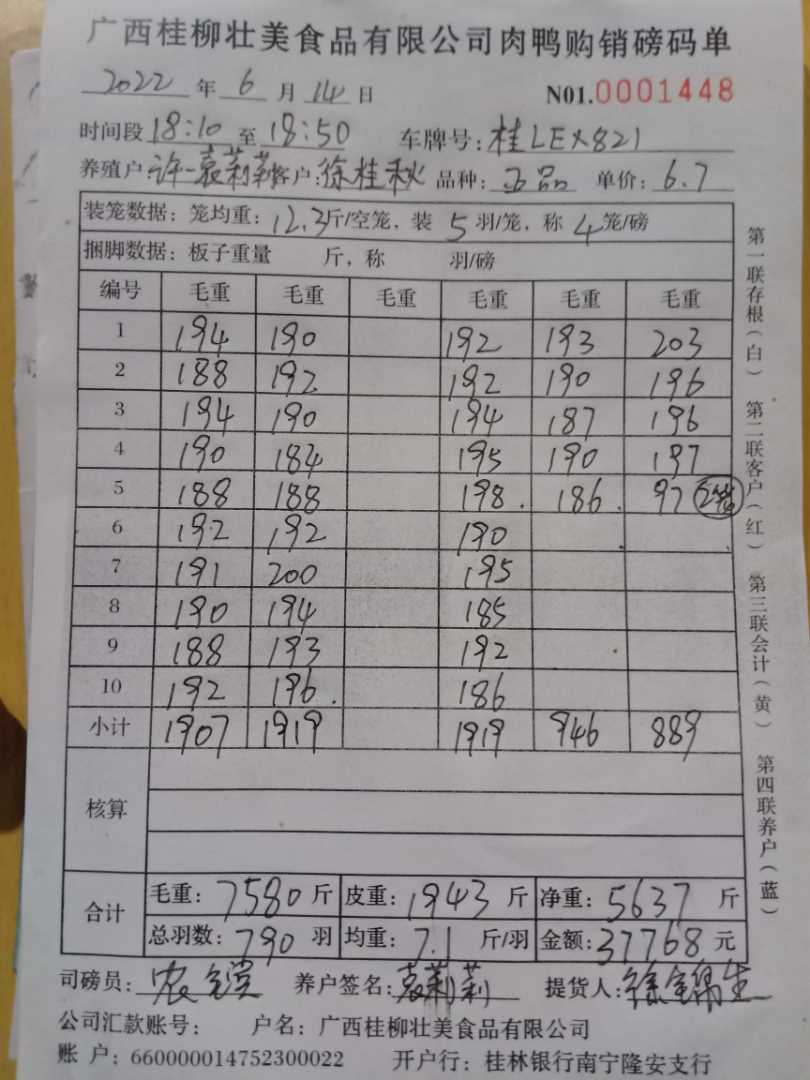 广西桂柳壮美食品有限公司肉鸭购销磅码单
2022 年 6 月 14 日 N01.0001448
时间段 18:10 至 18:50 车牌号: 桂LEX821
养殖户: 许一袁莉莉 客户: 徐桂秋 品种: 正品 单价: 6.7
装笼数据: 笼均重: 12.3斤/空笼, 装 5 羽/笼, 称 4 笼/磅
捆脚数据: 板子重量 斤, 称 羽/磅
编号 毛重 毛重 毛重 毛重 毛重 毛重
1 194 190 192 193 203
2 188 192 192 190 196
3 194 190 194 187 196
4 190 184 195 190 197
5 188 188 198. 186. 97 2笼
6 192 192 190
7 191 200 195
8 190 194 185
9 188 193 192
10 192 196. 186
小计 1907 1919 1919 946 889
核算
合计 毛重: 7580 斤 皮重: 1943 斤 净重: 5637 斤
总羽数: 790 羽 均重: 7.1 斤/羽 金额: 37768 元
司磅员: 养户签名: 袁莉莉 提货人:
公司汇款账号: 户名: 广西桂柳壮美食品有限公司
账 户: 660000014752300022 开户行: 桂林银行南宁隆安支行
第一联存根(白) 第二联客户(红) 第三联会计(黄) 第四联养户(蓝)